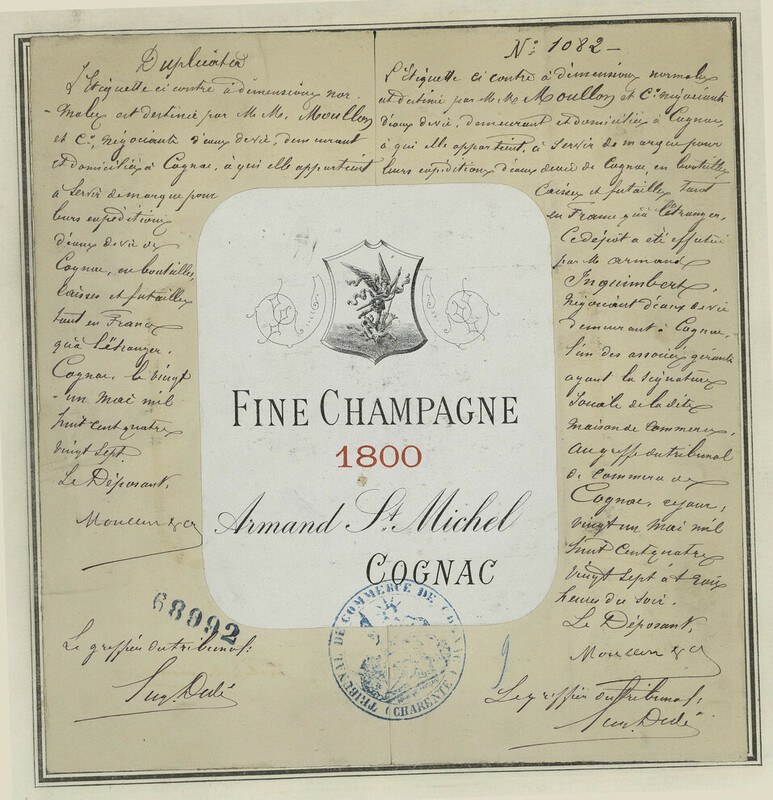 Duplicata
L'Etiquette ci contre à dimensions nor-
-males est destinée par M M. Moullon
et Cie, négociants d'eaux de vie, demeurant
et domiciliés à Cognac, à qui elle appartient
à servir de marque pour
leurs expéditions
d'eaux de vie de
Cognac, en bouteilles,
caisses et futailles
tant en France
qu'à l'étranger.
Cognac, le vingt
-un Mai mil
huit cent quatre
vingt sept.
Le Déposant,
Moullon & Cie
68992
Le greffier du tribunal:
N° 1082-
L'Etiquette ci contre à dimensions normales
est destinée par M M Moullon et Cie négociants
d'eaux de vie, demeurant et domiciliés à Cognac,
à qui elle appartient, à servir de marque pour
leurs expéditions d'eaux de vie de Cognac, en bouteilles
caisses et futailles tant
en France qu'à l'étranger.
Ce dépôt a été effectué
par M. Armand
Inquimbert,
négociant d'eaux de vie
demeurant à Cognac,
l'un des associés gérants
ayant la signature
sociale de la dite
maison de commerce,
au greffe du tribunal
de commerce de
Cognac, ce jour,
vingt un mai mil
huit cent quatre
vingt sept à trois
heures du soir.
Le Déposant,
Moullon & Cie
Le greffier du tribunal:
FINE CHAMPAGNE
1800
Armand St. Michel
COGNAC
TRIBUNAL DE COMMERCE DE COGNAC (CHARENTE)
9